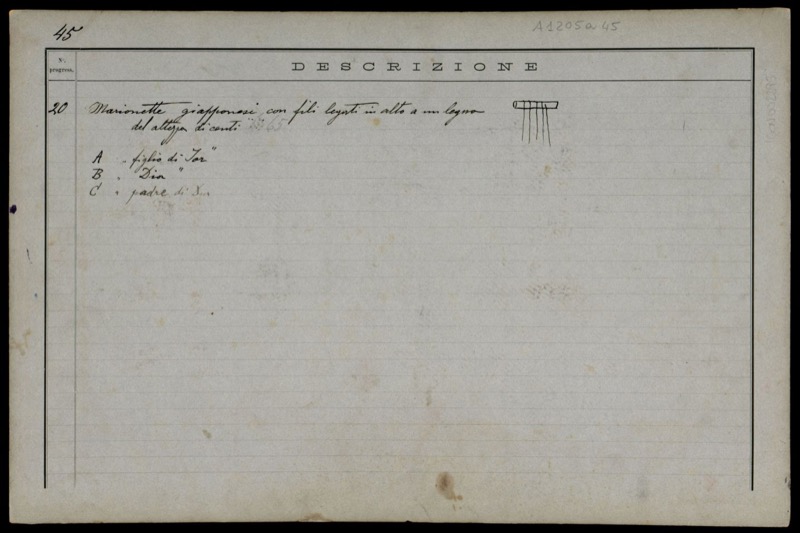 45
A1205a 45
N.
progress.
DESCRIZIONE
20 Marionette giapponesi con fili legati in alto a un legno
del altezza di centi
A " figlio di Tor"
B " Dia "
C " padre di